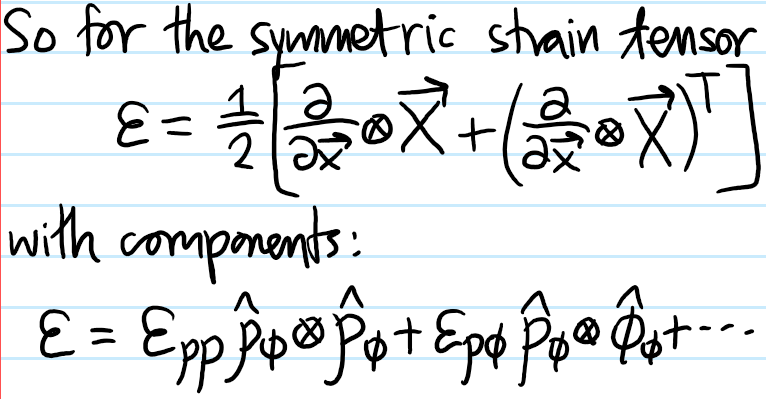 So for the symmetric strain tensor
ε = 1/2 [∂/∂x⃗ ⊗ X⃗ + (∂/∂x⃗ ⊗ X⃗)ᵀ]
with components:
ε = ε_ρρ ρ̂_φ ⊗ ρ̂_φ + ε_ρφ ρ̂_φ ⊗ φ̂_φ + ···